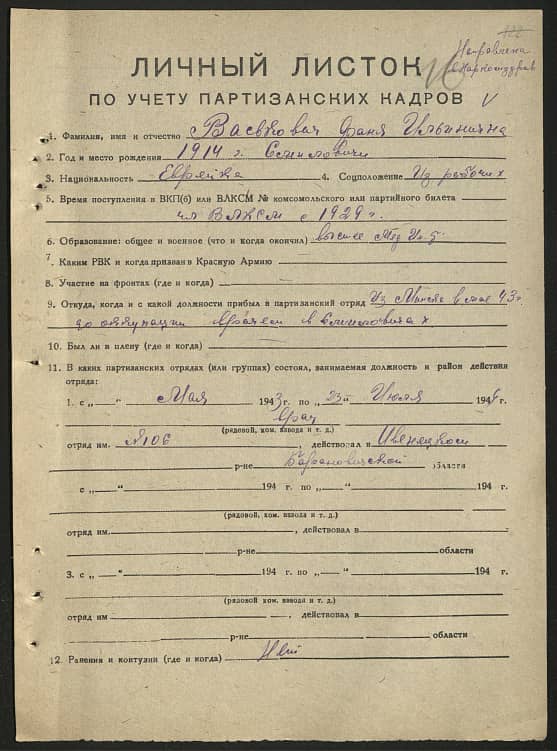 Направлена
в Наркомздрав
ЛИЧНЫЙ ЛИСТОК
ПО УЧЕТУ ПАРТИЗАНСКИХ КАДРОВ V
1. Фамилия, имя и отчество Васькович Фаня Ильинична
2. Год и место рождения 1914 г.
3. Национальность Еврейка 4. Соцположение Из рабочих
5. Время поступления в ВКП(б) или ВЛКСМ № комсомольского или партийного билета
чл ВЛКСМ с 1929 г.
6. Образование: общее и военное (что и когда окончил) высшее Мед
7. Каким РВК и когда призван в Красную Армию
8. Участие на фронтах (где и когда)
9. Откуда, когда и с какой должности прибыл в партизанский отряд Из Минска в мае 43 г.
до оккупации врачем в
10. Был ли в плену (где и когда)
11. В каких партизанских отрядах (или группах) состоял, занимаемая должность и район действия
отряда:
1. с „ “ Мая 1943 г. по „23“ Июля 1944 г.
Врач
(рядовой, ком. взвода и т. д.)
отряд им. №106 , действовал в Ивенецком
р-не Барановичской области
с „ “ 194 г. по „ “ 194 г.
(рядовой, ком. взвода и т. д.)
отряд им. , действовал в
р-не области
3. с „ “ 194 г. по „ “ 194 г.
(рядовой, ком. взвода и т. д.)
отряд им , действовал в
р-не области
12. Ранения и контузии (где и когда) Нет